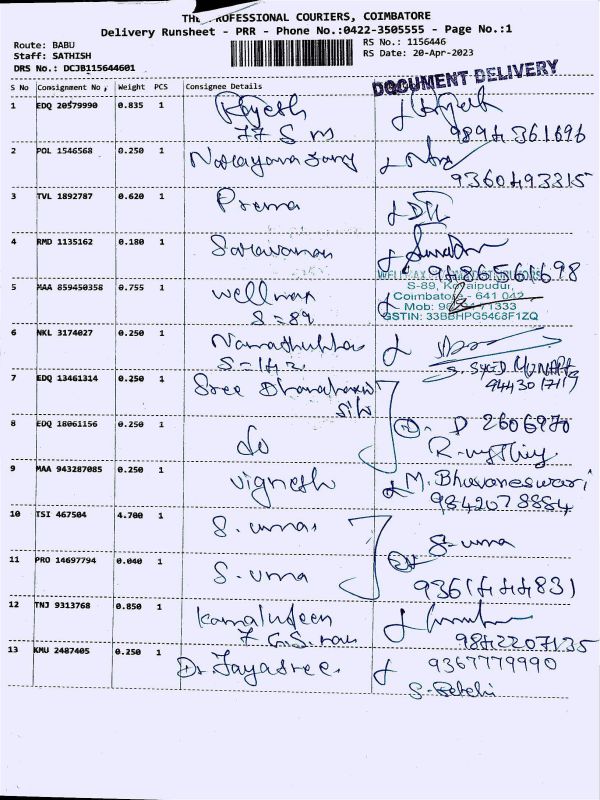 THE PROFESSIONAL COURIERS, COIMBATORE
Delivery Runsheet - PRR - Phone No.:0422-3505555 - Page No.:1
Route: BABU
RS No.: 1156446
Staff: SATHISH
RS Date: 20-Apr-2023
DRS No.: DCJB115644601
DOCUMENT DELIVERY
S No Consignment No, Weight PCS Consignee Details
1 EDQ 20579990 0.835 1 Rajesh
77 S m 9894361696
2 POL 1546568 0.250 1
9360493315
3 TVL 1892787 0.620 1 Prema
4 RMD 1135162 0.180 1 Saravanan
9486561698
5 MAA 859450358 0.755 1 wellmax
S=89
S-89,
Coimbatore - 641 042
Mob:
GSTIN: 33BBHPG5468F1ZQ
6 NKL 3174027 0.250 1
S=142
7 EDQ 13461314 0.250 1 Sree
8 EDQ 18061156 0.250 1 do
D 2606970
9 MAA 943287085 0.250 1 vignesh M. Bhuvaneswari
9842078884
10 TSI 467504 4.700 1 S. uma
S-uma
11 PRO 14697794 0.040 1 S. uma
9361444831
12 TNJ 9313768 0.850 1 Kamaludeen
9842207135
13 KMU 2487405 0.250 1 Dr Jayasree. 9367779990